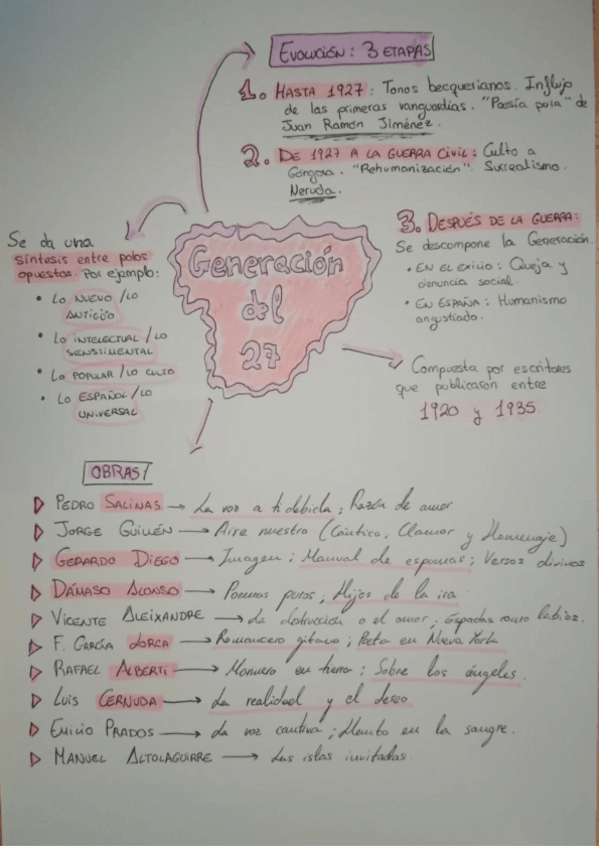 EVOLUCIÓN: 3 ETAPAS
1. HASTA 1927: Tonos becquerianos. Influjo
de las primeras vanguardias. "Poesía pura" de
Juan Ramón Jiménez.
2. DE 1927 A LA GUERRA CIVIL: Culto a
Góngora. "Rehumanización". Surrealismo.
Neruda.
3. DESPUÉS DE LA GUERRA:
Se descompone la Generación.
• EN EL EXILIO: Queja y
denuncia social.
• EN ESPAÑA: Humanismo
angustiado.
Se da una
síntesis entre polos
opuestos. Por ejemplo:
• LO NUEVO/LO
ANTIGUO
• LO INTELECTUAL/LO
SENSTIMENTAL
• LO POPULAR/LO CULTO
• LO ESPAÑOL/LO
UNIVERSAL
Generación
del
27
Compuesta por escritores
que publicaron entre
1920 y 1935
OBRAS/
PEDRO SALINAS → La voz a ti debida; Razón de amor
JORGE GUILLÉN → Aire nuestro (Cántico, Clamor y Homenaje)
GERARDO DIEGO → Imagen; Manual de espumas; Versos divinos
DÁMASO ALONSO → Poemas puros; Hijos de la ira
VICENTE ALEIXANDRE → La destrucción o el amor; Espadas como labios.
F. GARCÍA LORCA → Romancero gitano; Poeta en Nueva York
RAFAEL ALBERTI → Marinero en tierra; Sobre los ángeles.
LUIS CERNUDA → La realidad y el deseo
EMILIO PRADOS → La voz cautiva; Llanto en la sangre.
MANUEL ALTOLAGUIRRE → Las islas invitadas.